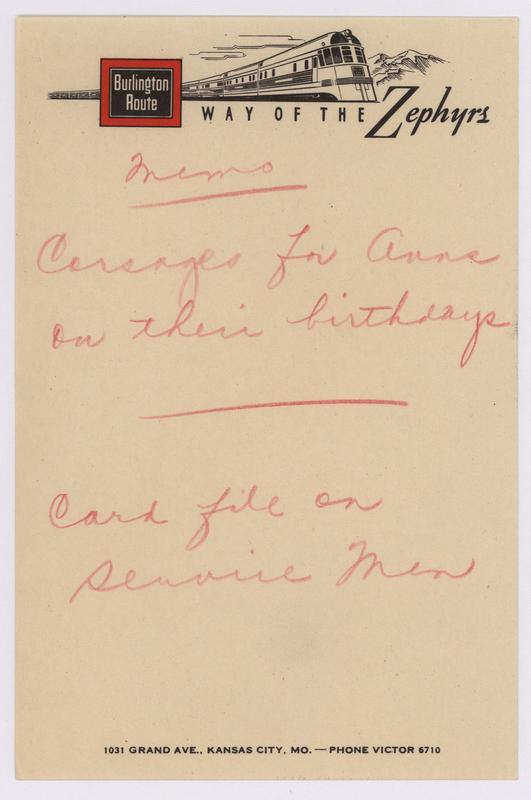 Burlington
Route
WAY OF THE Zephyrs
Memo
Corsages for Anns
on their birthdays
Card file on
Service Men
1031 GRAND AVE., KANSAS CITY, MO. — PHONE VICTOR 6710